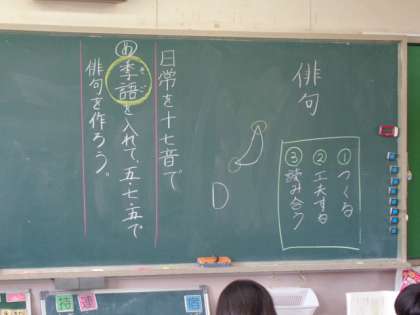 俳句
①つくる
②工夫する
③読み合う
D
日常を十七音で
め季語を入れて、五・七・五で
きご
俳句を作ろう。
持
連
宿